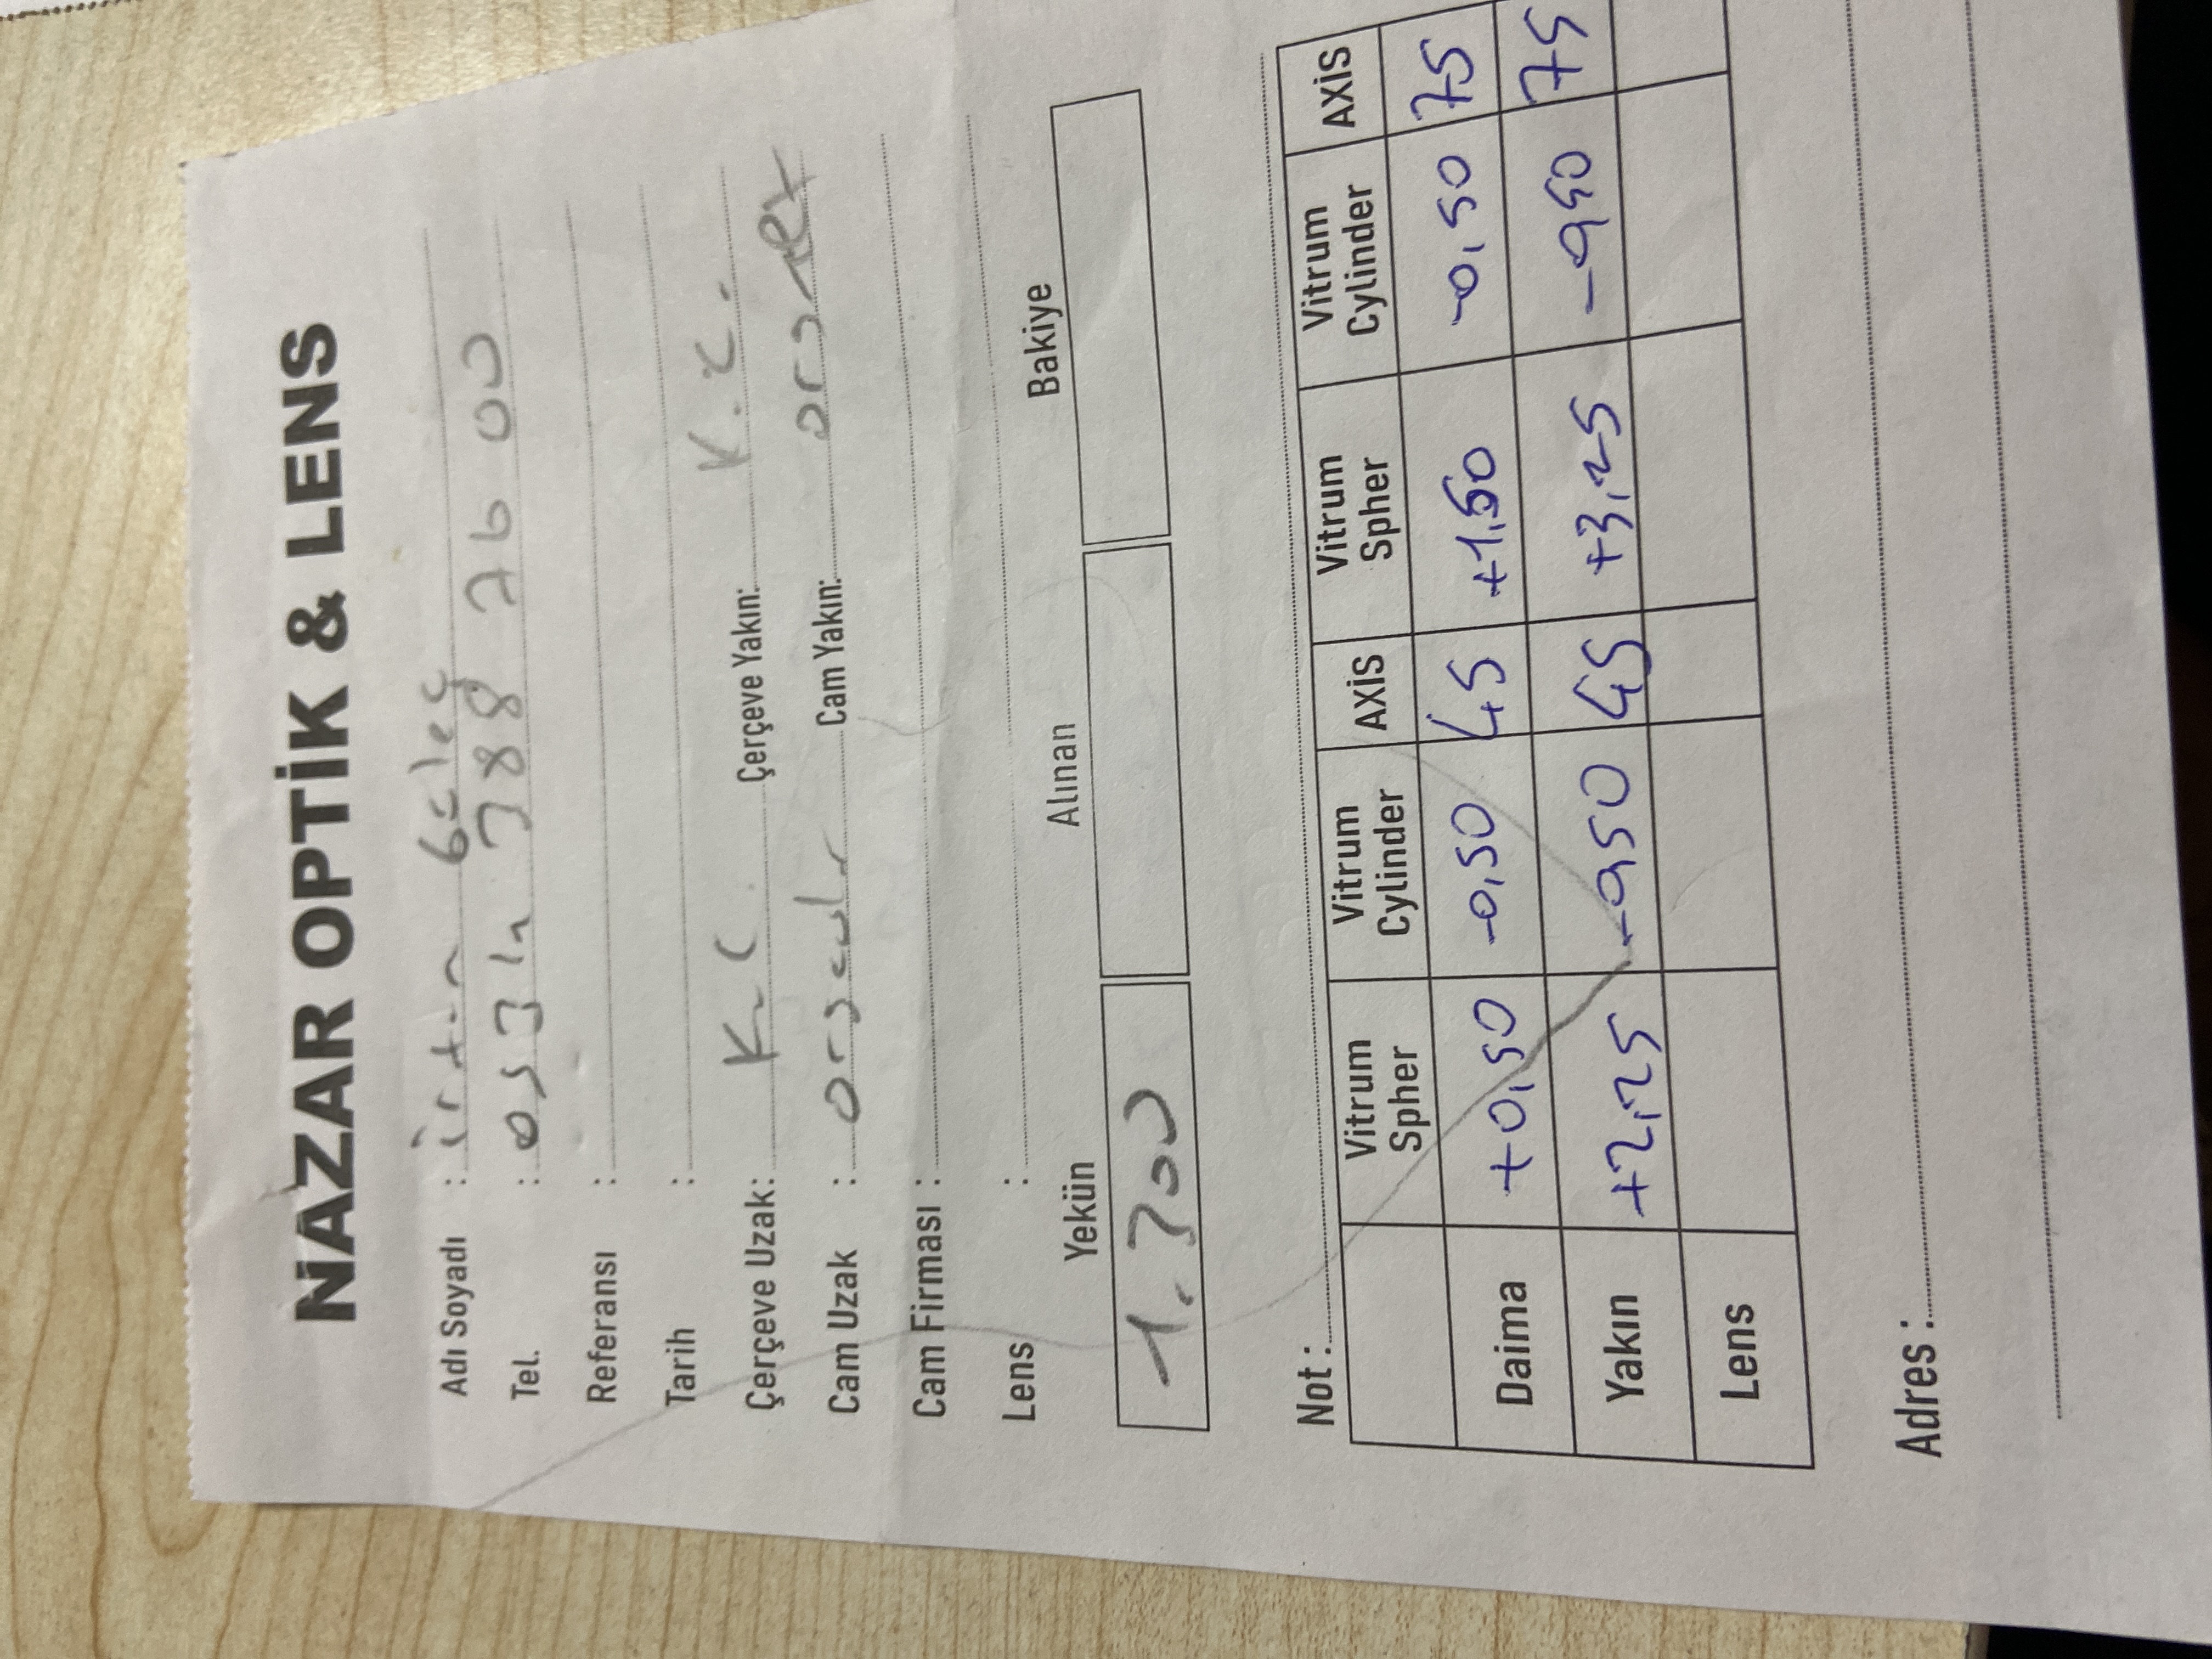 NAZAR OPTİK & LENS
Adı Soyadı : irfan Güleç
Tel. : 0534 388 76 00
Referansı :
Tarih :
Çerçeve Uzak: K.C. Çerçeve Yakın: K.C.
Cam Uzak : Cam Yakın:
Cam Firması :
Lens :
Yekün Alınan Bakiye
1.300
Not :
Vitrum Spher Vitrum Cylinder AXİS Vitrum Spher Vitrum Cylinder AXİS
Daima +0,50 -0,50 45 +1,50 -0,50 75
Yakın +2,25 -0,50 45 +3,25 -0,50 75
Lens
Adres :